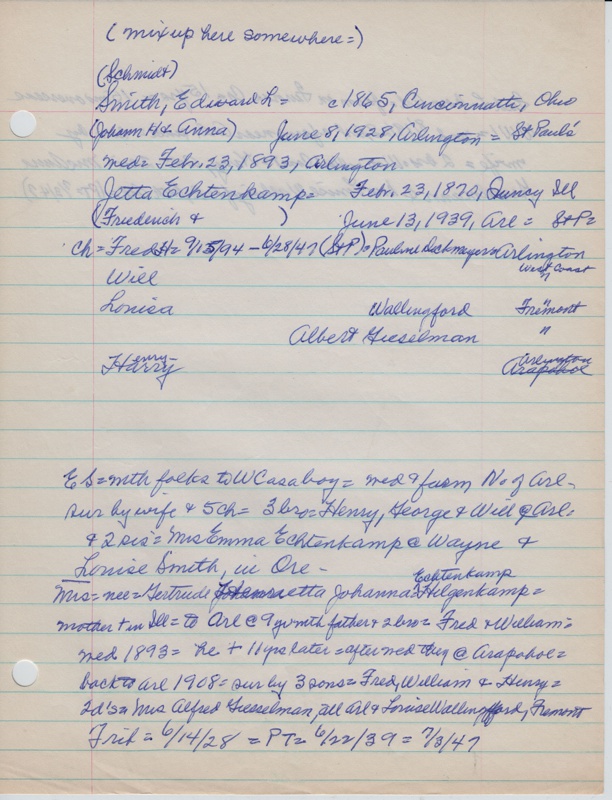 (mixup here somewhere=)
(Schmidt)
Smith, Edward L= c1865, Cincinnatti, Ohio
(Johann H & Anna) June 8, 1928, Arlington = St Paul's
med= Febr. 23, 1893, Arlington
Jetta Echtenkamp= Febr. 23, 1870, Quncy Ill
(Friederich & ) June 13, 1939, Arl = St P=
ch= Fred H= 9/15/94 - 6/28/47 (St P)= Pauline = Arlington
Will West Coast
Louisa Wallingford Fremont
Albert Gieselman "
Henry Harry Arlington Arapahoe
E S= with folks to W C as a boy= med & farm No of Arl-
sur by wife & 5 ch= 3 bro= Henry, George & Will @ Arl-
& 2 sis= Mrs Emma Echtenkamp @ Wayne &
Louise Smith, in Ore-
Echtenkamp
Mrs= nee= Gertrude Henrietta Johanna= Hilgenkamp=
mother + in Ill= to Arl @ 9 with father & 2 bro= Fred & William=
med 1893= he + 11 yrs later= after med they @ Arapahoe=
back to Arl 1908= sur by 3 sons= Fred, William & Henry=
2 d's= Mrs Alfred Gieselman, all Arl & Louise Wallingford, Fremont
Trib= 6/14/28 = PT= 6/22/39 = 7/3/47